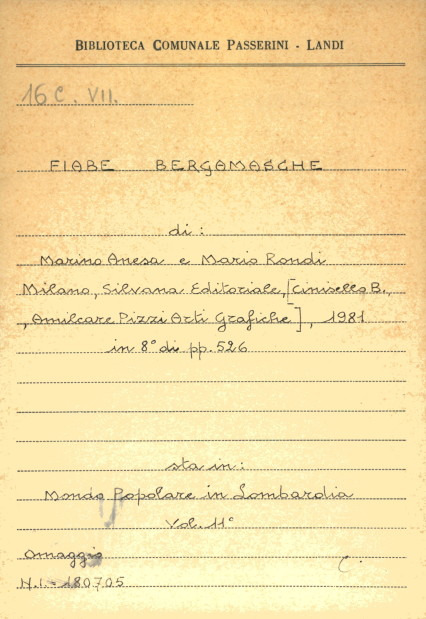 BIBLIOTECA COMUNALE PASSERINI - LANDI
16 C. VII.
FIABE BERGAMASCHE
di:
Marino Anesa e Mario Rondi
Milano, Silvana Editoriale, [Cinisello B.,
, Amilcare Pizzi Arti Grafiche], 1981
in 8° di pp. 526
sta in:
Mondo Popolare in Lombardia
Vol. 11°
Omaggio
C.
N.I. = 180705